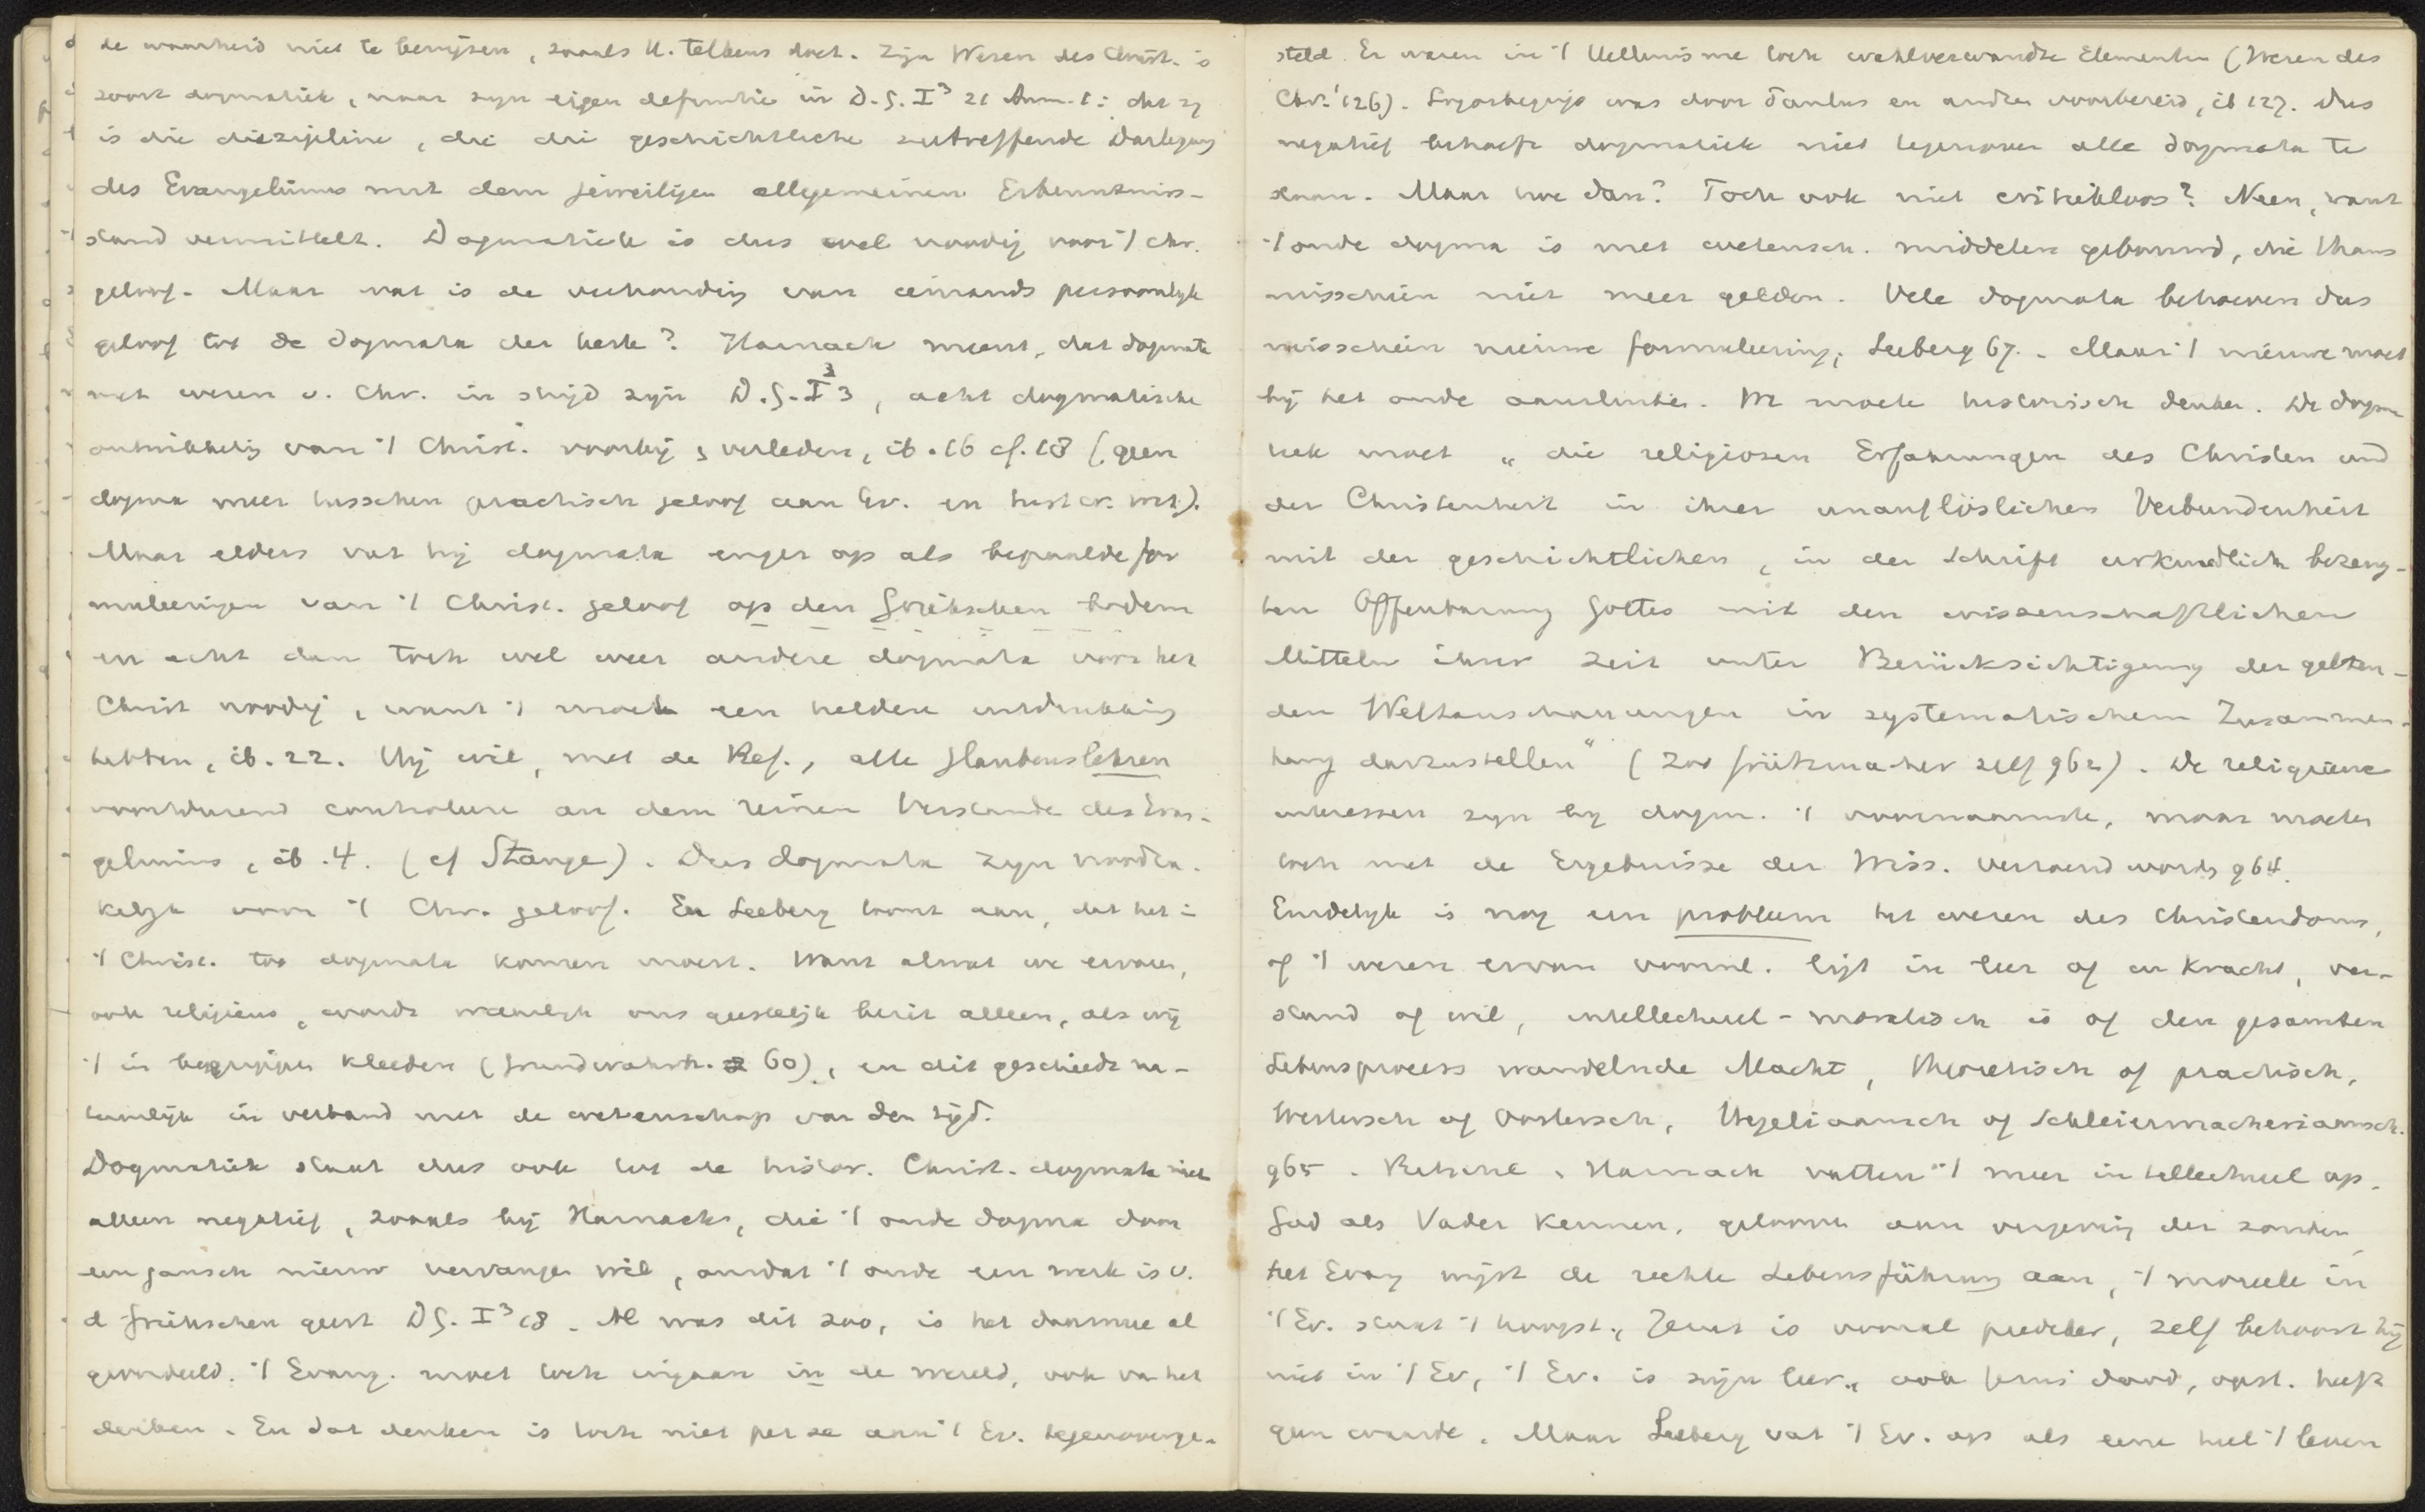 de waarheid niet te bewijzen, zooals H. telkens doet. Zijn Wesen des Christ. is
soort dogmatiek, naar zijn eigen definitie in D.G. I³ 21 Anm. 1: dat zij
is die diszipline, die die geschichtliche zutreffende Darlegung
des Evangeliums mit dem jeweiligen allgemeinen Erkenntniss-
stand vermittelt. Dogmatiek is dus wel noodig voor 't chr.
geloof. Maar wat is de verhouding van iemands persoonlijk
geloof tot de dogmata der kerk? Harnack meent, dat dogmata
met wezen v. Chr. in strijd zijn D.G. I³ 3, acht dogmatische
ontwikkeling van 't Christ. voorbij, verleden, ib. 16 cf. 18 (geen
dogma meer tusschen practisch geloof aan Ev. en hist. cr. wet.).
Maar elders vat hij dogmata enger op als bepaalde for
muleeringen van 't Christ. geloof op den Griekschen bodem
en acht dan toch wel weer andere dogmata voor het
Christ noodig, want 't moet een heldere uitdrukking
hebben, ib. 22. Hij wil, met de Ref., alle Glaubenslehren
voortdurend controleren an dem reinen Verstande des Evan-
geliums, ib. 4. (cf Stange). Dus dogmata zijn noodza-
kelijk voor 't Chr. geloof. En Seeberg toont aan, dat het in
't Christ. tot dogmata komen moest. Want alwat we ervaren,
ook religieus, wordt namelijk ons geestelijk bezit alleen, als wij
't in begrippen kleeden (Grundwahrh. 60), en dit geschiedt na-
tuurlijk in verband met de wetenschap van den tijd.
Dogmatiek staat dus ook tot de histor. Christ. dogmata niet
alleen negatief, zooals bij Harnack, die 't oude dogma door
een gansch nieuw vervangen wil, omdat 't oude een werk is v.
d Griekschen geest DG. I³ 18. Al was dit zoo, is het daarmee al
geoordeeld. 't Evang. moet toch ingaan in de wereld, ook van het
denken. En dat denken is toch niet per se aan 't Ev. tegenoverge-
steld. Er waren in 't Hellenisme toch wahlverwandte Elementen (Wesen des
Chr. 126). Logosbegrip was door Paulus en andren voorbereid, ib 127. Dus
negatief behoeft dogmatiek niet tegenover alle dogmata te
staan. Maar hoe dan? Toch ook niet critiekloos? Neen, want
't oude dogma is met wetensch. middelen gebouwd, die thans
misschien niet meer gelden. Vele dogmata behoeven dus
misschien nieuwe formuleering, Seeberg 67. Maar 't nieuwe moet
bij het oude aansluiten. We moeten historisch denken. De dogma
tiek moet „die religiosen Erfahrungen des Christen und
der Christenheit in ihrer unauflöslichen Verbundenheit
mit der geschichtlichen, in der Schrift urkundlich bezeug-
ten Offenbarung Gottes mit den wissenschaftlichen
Mitteln ihrer Zeit unter Berücksichtigung der gelten-
den Weltanschauungen in systematischem Zusammen-
hang darzustellen" (zoo Grützmacher zelf 962). De religieuse
interessen zijn bij dogm. 't voornaamste, maar moeten
toch met de Ergebnisse der Wiss. verzoend worden 964.
Eindelijk is nog een probleem het wezen des Christendoms,
of 't wezen ervan vooral. ligt in leer of in kracht, ver-
stand of wil, intellectueel-moralisch is of den gesamten
Lebensprocess wandelnde Macht, theoretisch of practisch,
Westersch of Oostersch, Hegeliaansch of Schleiermacheriaansch.
965. Ritschl, Harnack vatten 't meer intellectueel op.
God als Vader kennen, gelooven aan vergeving der zonden,
het Evang wijst de rechte Lebensführung aan, 't moreele in
't Ev. staat 't hoogst, Jezus is vooral prediker, zelf behoort hij
niet in 't Ev, 't Ev. is zijn leer, ook Jezus dood, opst. heeft
geen waarde. Maar Seeberg vat 't Ev. op als eene heel 't leven